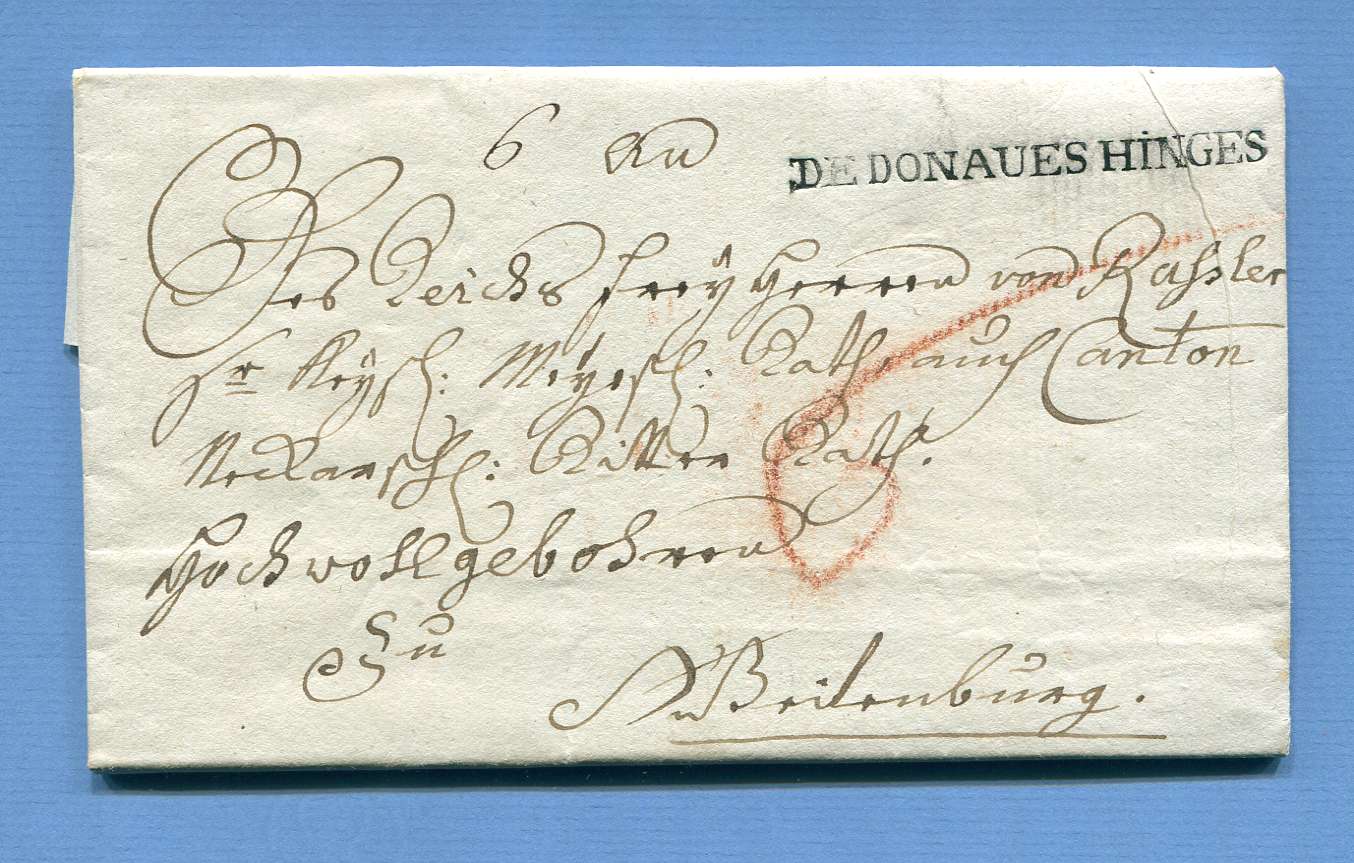 6 An
DE DONAUESHINGES
Des Reichs Frey Herren von Rassler
Sr Kaysl: Mayest: Rath auch Canton
Neckarschl: Ritter Rath
Hochwollgebohren
Zu
Weitenburg.